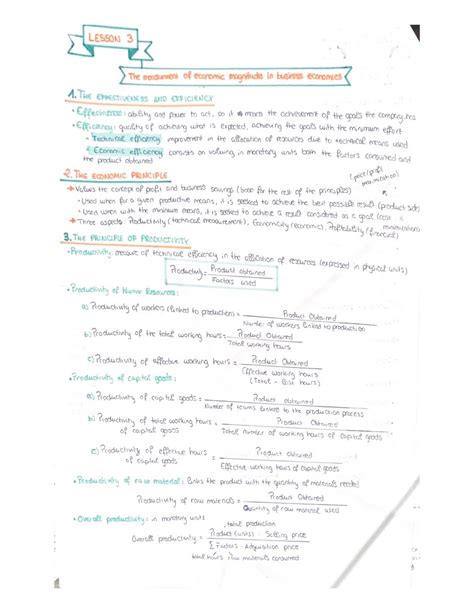 LESSON 3
The measurement of economic magnitudes in business economics
1. THE EFFECTIVENESS AND EFFICIENCY
• Effectiveness: ability and power to act, so it means the achievement of the goals the company has
• Efficiency: quality of achieving what is expected, achieving the goals with the minimum effort
• Technical efficiency improvement in the allocation of resources due to technical means used
• Economic efficiency consists on valuing in monetary units both the factors consumed and
the product obtained
2. THE ECONOMIC PRINCIPLE
(price/profit
maximization)
→ Values the concept of profit and business savings (base for the rest of the principles)
• Used when for a given productive means, it is seeked to achieve the best possible result (product side)
• Uses when with the minimum means, it is seeked to achieve a result considered as a goal (cost
minimization)
★ Three aspects: Productivity (technical measurement), Economicity (economics), Profitability (financial)
3. THE PRINCIPLE OF PRODUCTIVITY
• Productivity: measure of technical efficiency in the allocation of resources (expressed in physical units)
Productivity = Product obtained
Factors used
• Productivity of Human Resources:
a) Productivity of workers (linked to production) = Product Obtained
Number of workers linked to production
b) Productivity of the total working hours = Product Obtained
Total working hours
c) Productivity of effective working hours = Product Obtained
Effective working hours
(Total - Lost hours)
• Productivity of capital goods:
a) Productivity of capital goods = Product Obtained
Number of teams linked to the production process
b) Productivity of total working hours = Product Obtained
of capital goods Total number of working hours of capital goods
c) Productivity of effective hours = Product Obtained
of capital goods Effective working hours of capital goods
• Productivity of raw material: links the product with the quantity of materials needed
Productivity of raw materials = Product Obtained
Quantity of raw materials used
• Overall productivity: in monetary units
total production
Overall productivity = Product (units) · Selling price
Σ Factors · Adquisition price
total hours raw materials consumed